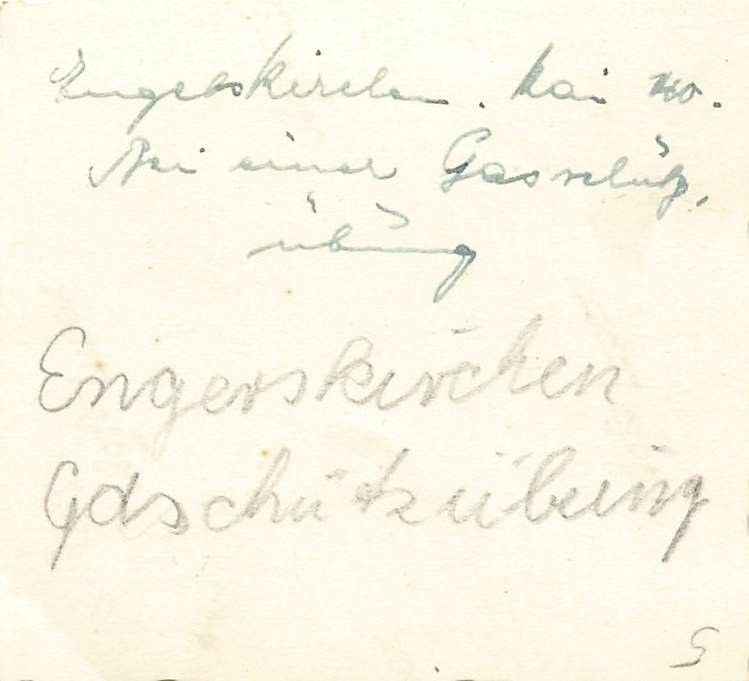 Engelskirchen. Mai 40.
Bei einer Gasschütz,
übung
Engerskirchen
Gasschützübung
G